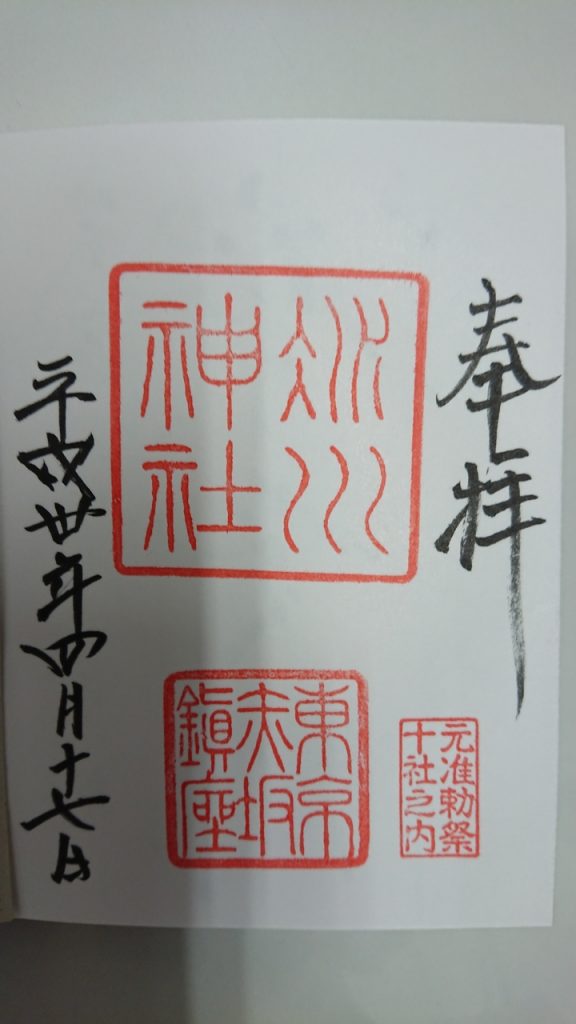 奉拝
氷川
神社
東京
赤坂
鎮座
元准勅祭
十社之内
平成卅年四月十七日